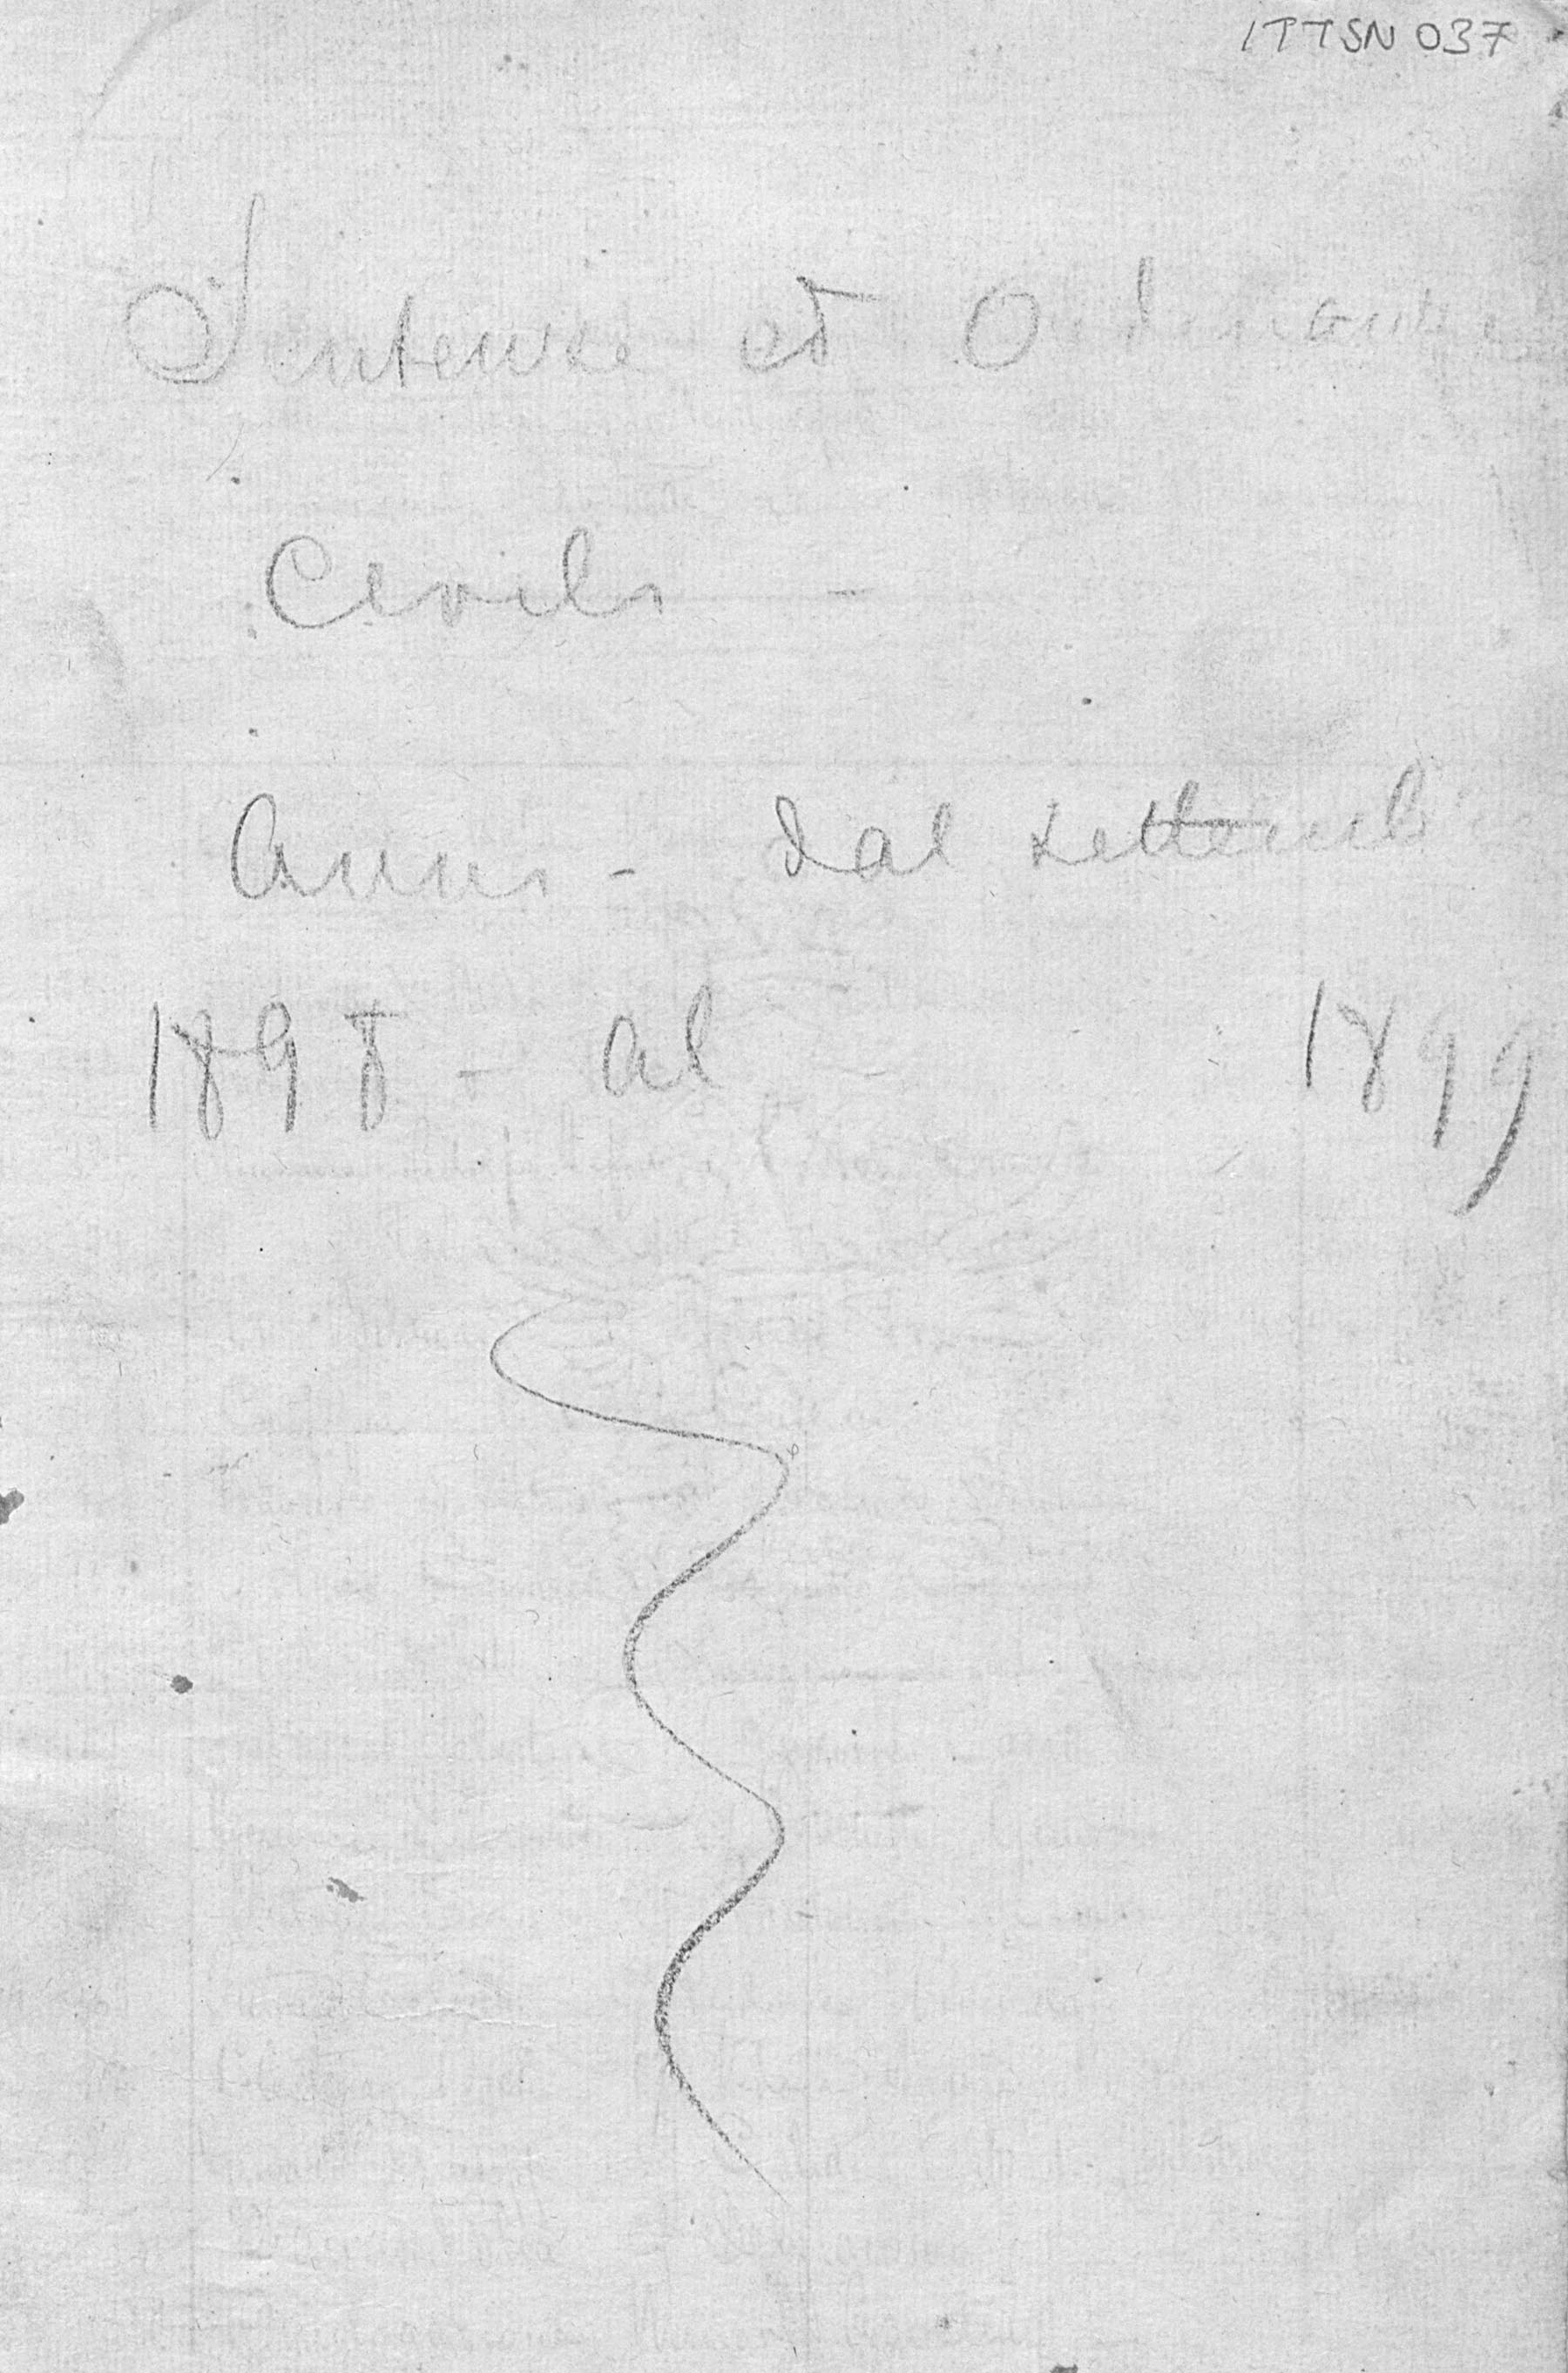 ITTSN 037
Sentenze ed Ordinanze
Civili -
Anni - dal settemb
1898 - al 1899